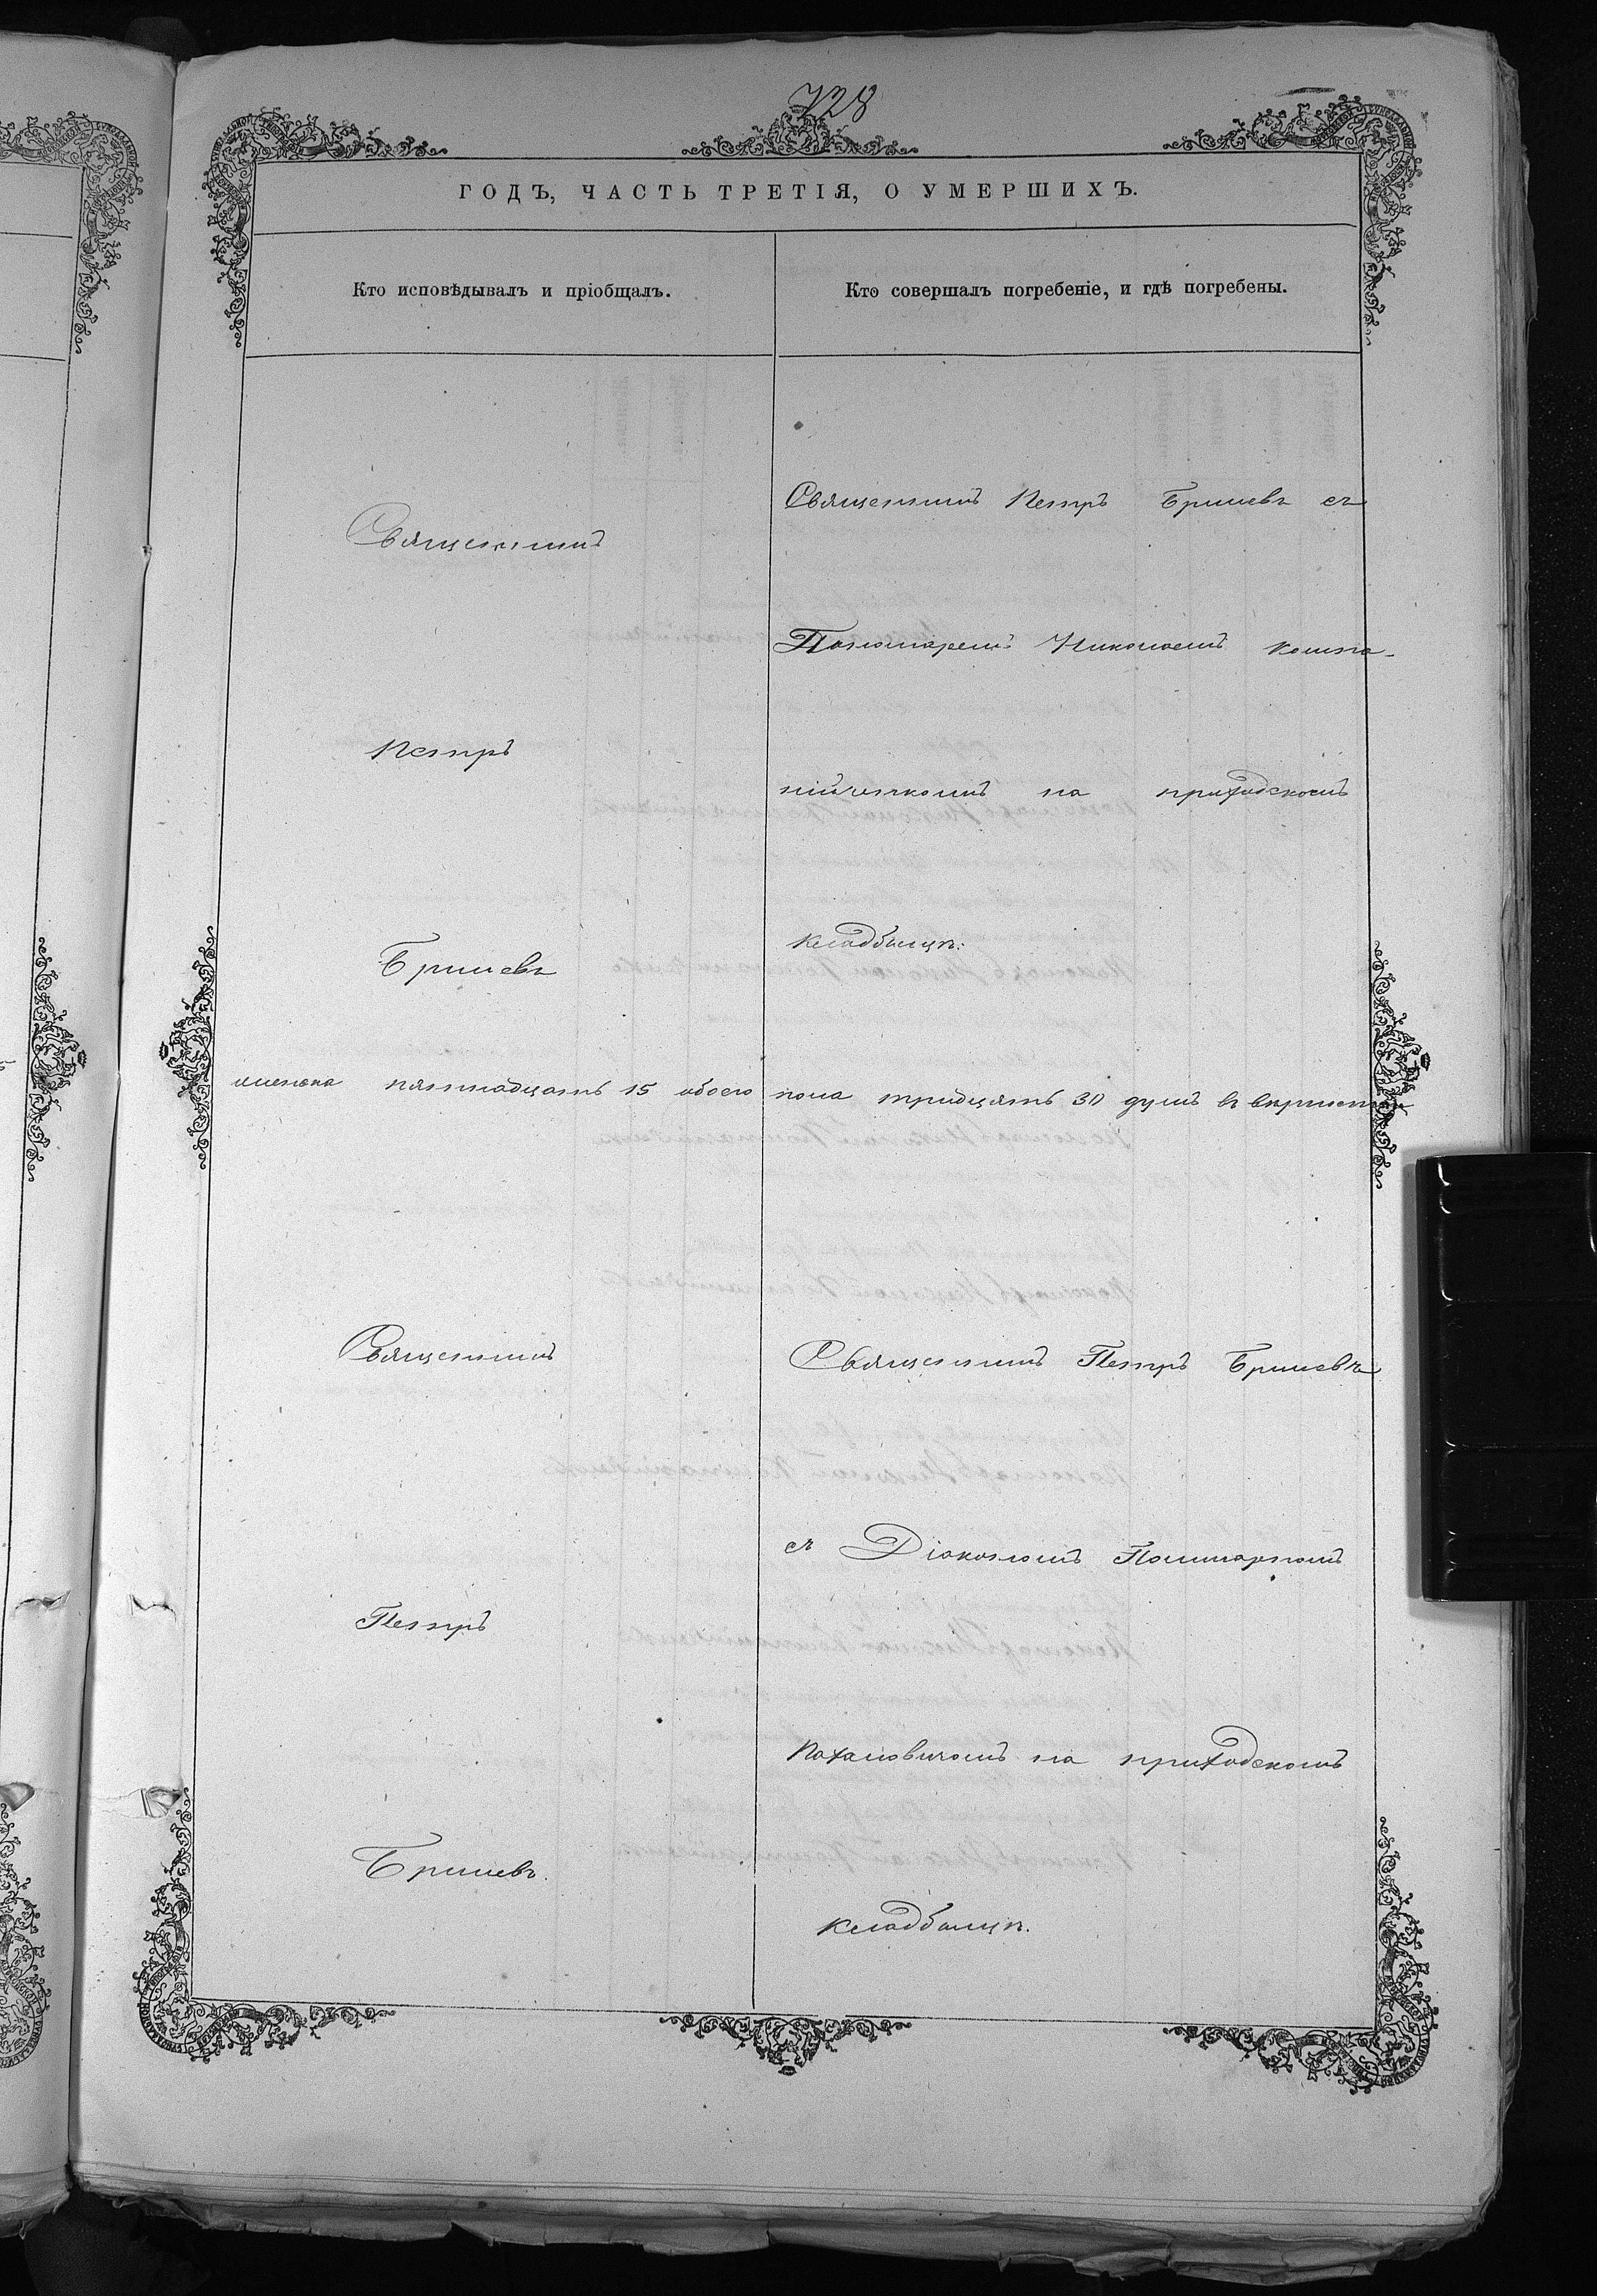 728
ГОДЪ, ЧАСТЬ ТРЕТІЯ, О УМЕРШИХЪ.
Кто исповѣдывалъ и пріобщалъ.
Священникъ
Петръ
Бриневъ
женска пятнадцать 15 обоего пола тридцать 30 душъ
Священникъ
Петръ
Бриневъ.
Кто совершалъ погребеніе, и гдѣ погребены.
Священникъ Петръ Бриневъ съ
Пономаремъ Николаемъ Компа-
нійченкомъ на приходскомъ
кладбищѣ.
Священникъ Петръ Бриневъ
съ Діакономъ
на приходскомъ
кладбищѣ.